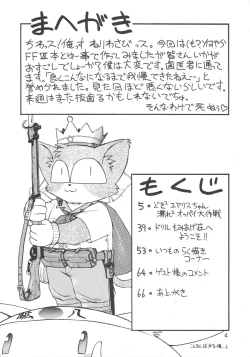 まへがき
ちわっス!俺っす ねりわさびっス。今回は(も?)なにやら
FFⅦ本とゆー事で作ってみましたが皆さんいかが
おすごしでしょーか?僕は大変です。歯医者に通って
ます。「良くこんなになるまで我慢できたねえ~」と
誉められました。見た目ほど悪くないらしいです。
来週はまた抜歯するかもしれないでしゅ。
そんなわけで死ぬっ
もくじ
5・どき エアリスちゃん
オッパイ大作戦
39・ドリルもはげ荘へ
ようこそ!!
53・いつものらく描き
コーナー
64・ゲスト様のコメント
66・あとがき
4